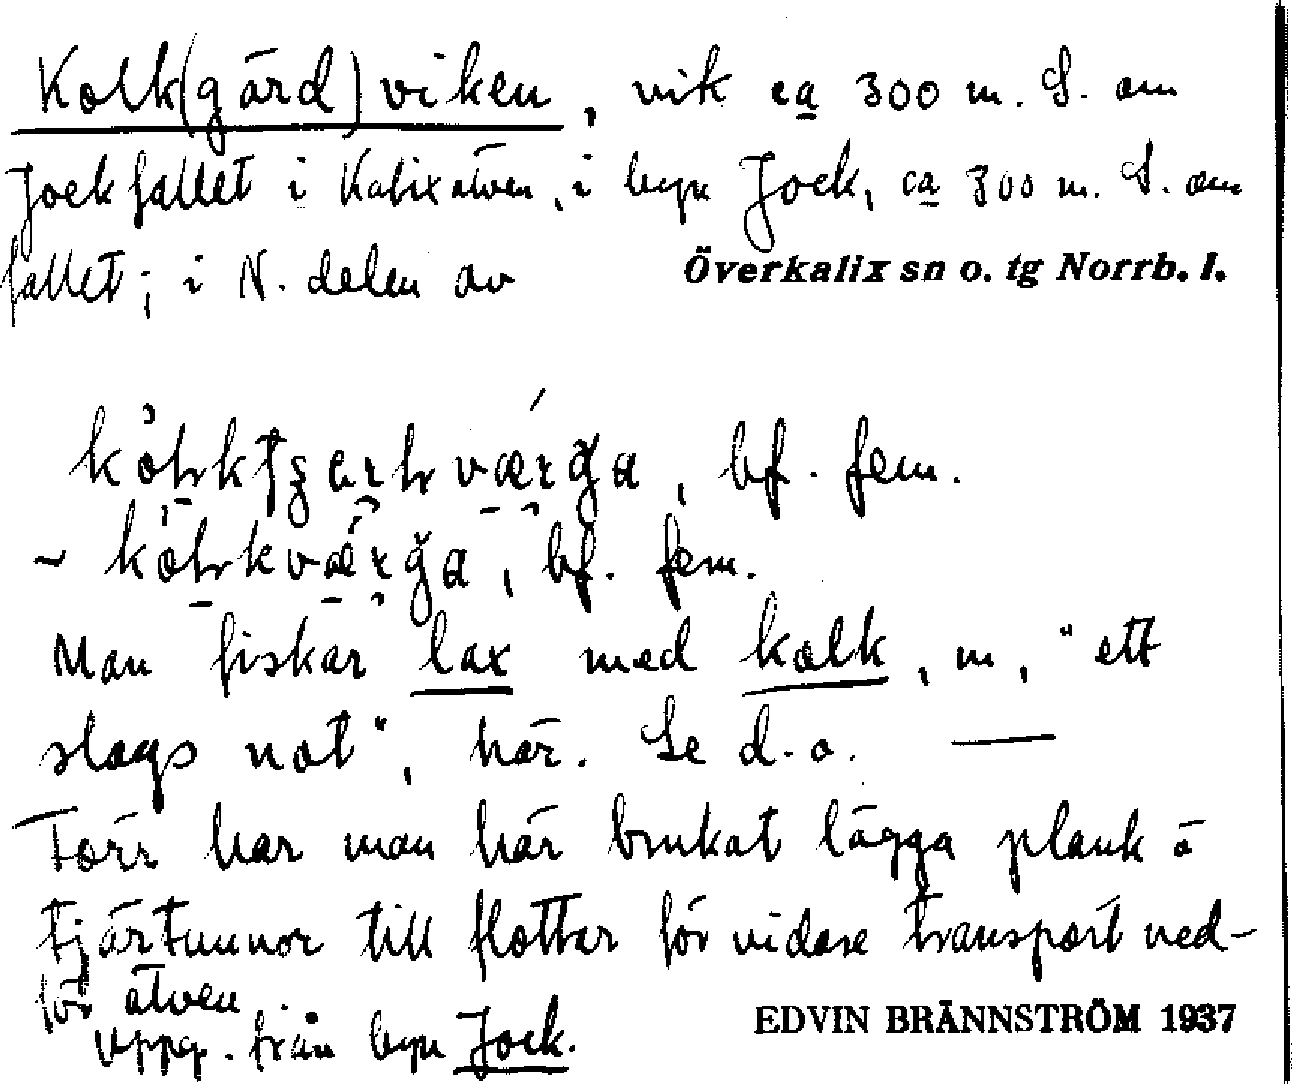 Kolk(gärd)viken, vik ca 300 m. S. om
Jockfallet i Kalixälven, i byn Jock, ca 300 m. S. om
fallet; i N. delen av Överkalix sn o. tg Norrb. l.
bf. fem.
~ bf. fem.
Man fiskar lax med kolk, m, "ett
slags not", här. Se d. o. —
Förr har man här brukat lägga plank å
tjärtunnor till flottar för vidare transport ned-
för älven.
Uppg. från byn Jock.
EDVIN BRÄNNSTRÖM 1937